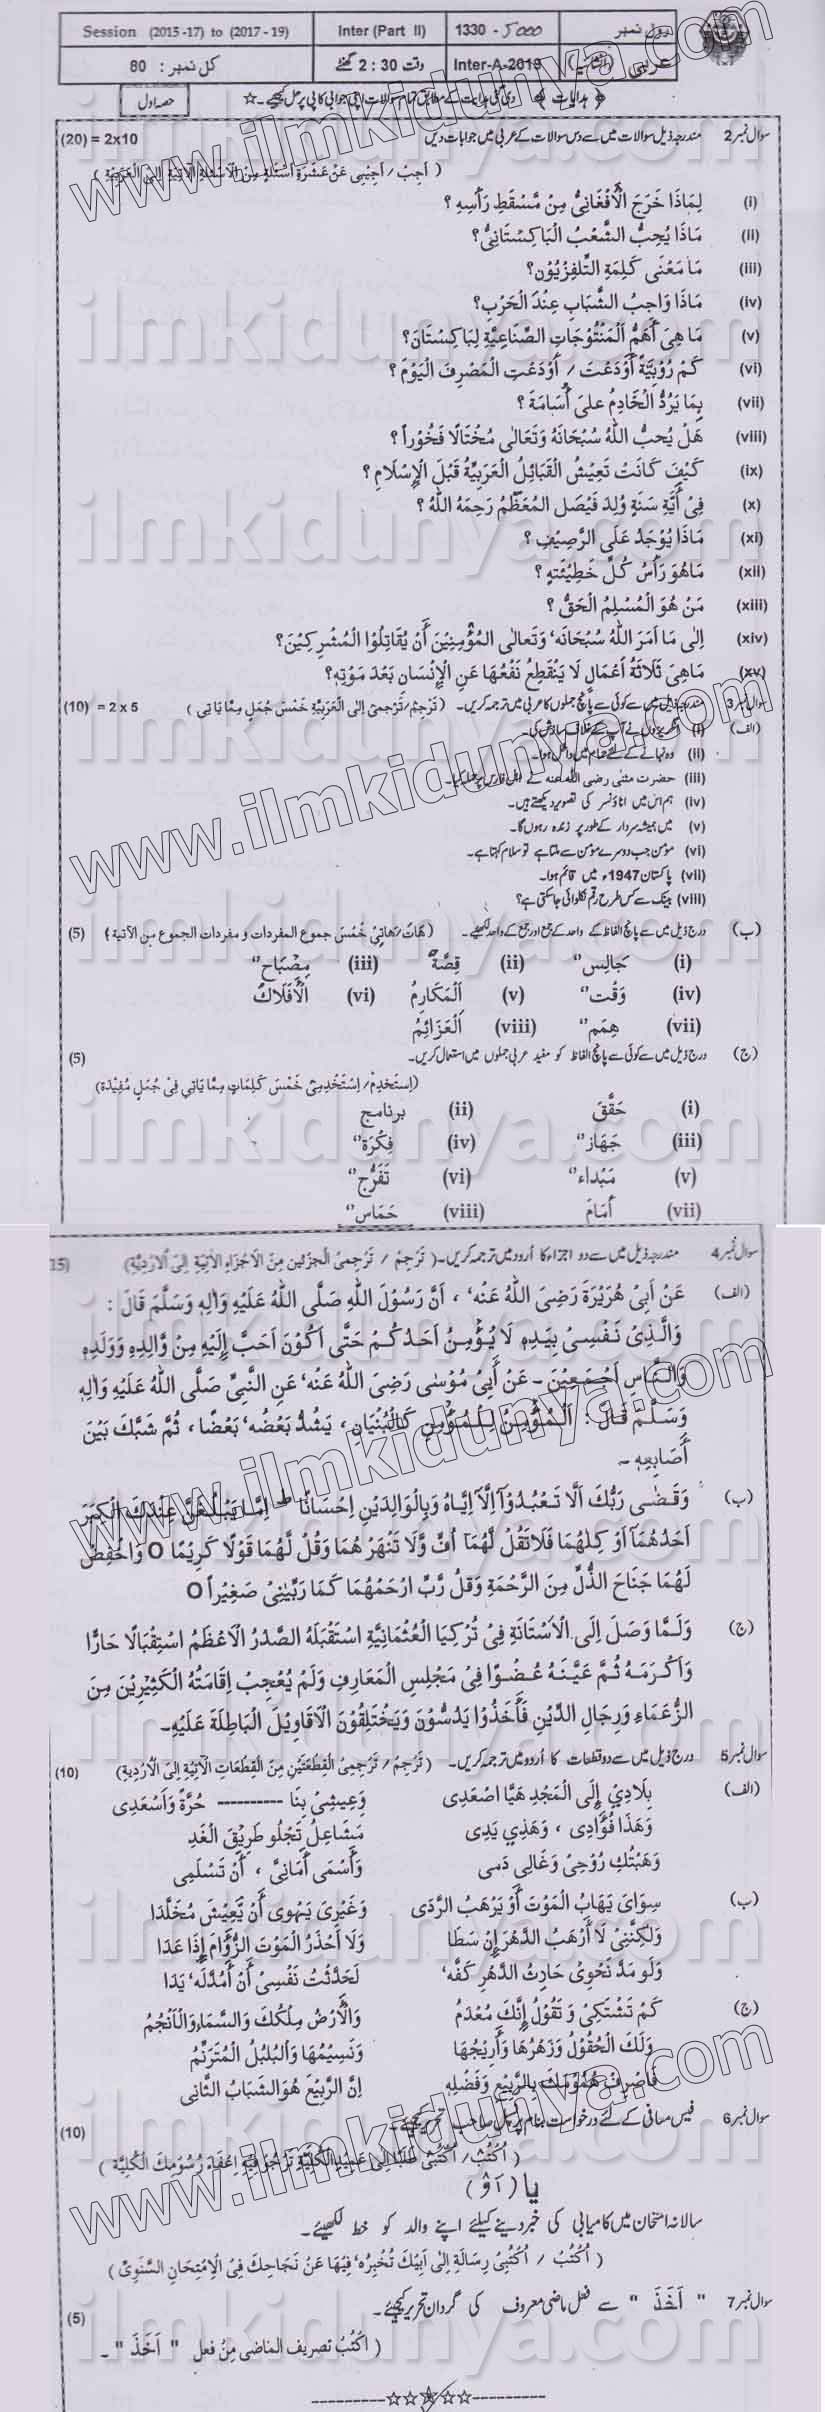 Session (2015 -17) to (2017 - 19) Inter (Part II) 1330 - 5000 رول نمبر
کل نمبر: 80 وقت 2 : 30 گھنٹے Inter-A-2019 عربی
حصہ اول ☆۔ دی گئی ہدایات کے مطابق تمام سوالات اپنی جوابی کاپی پر حل کیجیے ﴿ ہدایات ﴾
سوال نمبر 2 مندرجہ ذیل سوالات میں سے دس سوالات کے عربی میں جوابات دیں (20) = 2x10
( اَجِبْ / اَجِيْبِى عَنْ عَشَرَةِ اَسْئِلَةٍ مِنَ الْاَسْئِلَةِ الْآتِيَةِ اِلَى الْعَرَبِيَّةِ )
(i) لِمَاذَا خَرَجَ الْأَفْغَانِىُّ مِنْ مَّسْقَطِ رَأْسِهِ ؟
(ii) مَاذَا يُحِبُّ الشَّعْبُ الْبَاكِسْتَانِىُّ؟
(iii) مَا مَعْنَى كَلِمَةِ التِّلِفِزْيُوْنِ؟
(iv) مَاذَا وَاجِبُ الشَّبَابِ عِنْدَ الْحَرْبِ؟
(v) مَا هِىَ أَهَمُّ الْمَنْتُوْجَاتِ الصِّنَاعِيَّةِ لِبَاكِسْتَانَ؟
(vi) كَمْ رُوْبِيَّةً أَوْدَعْتَ / أَوْدَعْتِ الْمَصْرِفَ الْيَوْمَ ؟
(vii) بِمَا يَرُدُّ الْخَادِمُ عَلىٰ أُسَامَةَ ؟
(viii) هَلْ يُحِبُّ اللهُ سُبْحَانَهُ وَتَعَالٰى مُخْتَالًا فَخُوْراً ؟
(ix) كَيْفَ كَانَتْ تَعِيْشُ الْقَبَائِلُ الْعَرَبِيَّةُ قَبْلَ الْإِسْلَامِ ؟
(x) فِىْ أَيَّةِ سَنَةٍ وُلِدَ فَيْصَلُ الْمُعَظَّمُ رَحِمَهُ اللهُ ؟
(xi) مَاذَا يُوْجَدُ عَلَى الرَّصِيْفِ ؟
(xii) مَاهُوَ رَأْسُ كُلِّ خَطِيْئَتهٍ ؟
(xiii) مَنْ هُوَ الْمُسْلِمُ الْحَقُّ ؟
(xiv) اِلٰى مَا اَمَرَ اللهُ سُبْحَانَه' وَتَعالٰى المُؤْمِنِيْنَ أَنْ يُقَاتِلُوْا الْمُشْرِكِيْنَ؟
(xv) مَاهِىَ ثَلَاثَةُ اَعْمَالٍ لَا يَنْقَطِعُ نَفْعُهَا عَنِ الْإِنْسَانِ بَعْدَ مَوْتِهٖ؟
سوال نمبر 3 مندرجہ ذیل میں سے کوئی سے پانچ جملوں کا عربی میں ترجمہ کریں۔ ( تَرْجِمْ/ تَرْجِمِىْ اِلَى الْعَرَبِيَّةِ خَمْسَ جُمَلٍ مِمَّا يَاتِى ) (10) = 2 x 5
(الف) (i) انگریزوں نے آپ کے خلاف سازش کی۔
(ii) وہ نہانے کے لئے حمام میں داخل ہوا۔
(iii) حضرت مثنٰی رضی اللہ عنہ نے اہل فارس پر حملہ کیا۔
(iv) ہم اس میں اناؤنسر کی تصویر دیکھتے ہیں۔
(v) میں ہمیشہ سردار کے طور پر زندہ رہوں گا۔
(vi) مؤمن جب دوسرے مؤمن سے ملتا ہے تو سلام کہتا ہے۔
(vii) پاکستان 1947ء میں قائم ہوا۔
(viii) بینک سے کس طرح رقم نکلوائی جاسکتی ہے؟
(ب) درج ذیل میں سے پانچ الفاظ کے واحد کے جمع اور جمع کے واحد لکھیے۔ (هَاتِ/هَاتِىْ خَمْسَ جموع المفردات و مفردات الجموع من الآتية ) (5)
(i) جَالِس'' (ii) قِصَّةٌ (iii) مِصْبَاح''
(iv) وَقْت'' (v) اَلْمَكَارِمُ (vi) اَلْأَفْلَاكُ
(vii) هِمَم'' (viii) اَلْعَزَائِمُ
(ج) درج ذیل میں سے کوئی سے پانچ الفاظ کو مفید عربی جملوں میں استعمال کریں۔ (5)
(اِسْتَخْدِمْ/ اِسْتَخْدِمِىْ خَمْسَ كَلِمَاتٍ مِمَّا يَاتِى فِىْ جُمَلٍ مُفِيْدَة)
(i) حَقَّقَ (ii) برنامج
(iii) جَهَاز'' (iv) فِكْرَة''
(v) مَبْداء'' (vi) تَفَرُّج''
(vii) أَمَامَ (viii) حَمَاس''
سوال نمبر 4 مندرجہ ذیل میں سے دو اجزاء کا اردو میں ترجمہ کریں۔ ( تَرْجِمْ / تَرْجِمِىْ الْجُزْئَيْنِ مِنَ الْاَجْزَاءِ الْاٰتِيَةِ اِلَى الْاُرْدِيَّةِ ) 15)
(الف) عَنْ اَبِىْ هُرَيْرَةَ رَضِىَ اللهُ عَنْهُ' ، اَنَّ رَسُوْلَ اللهِ صَلَّى اللهُ عَلَيْهِ وَاٰلِهٖ وَسَلَّمَ قَالَ :
وَالَّذِىْ نَفْسِىْ بِيَدِهٖ لَا يُؤْمِنُ اَحَدُكُمْ حَتّٰى اَكُوْنَ اَحَبَّ اِلَيْهِ مِنْ وَّالِدِهٖ وَوَلَدِهٖ
وَالنَّاسِ اَجْمَعِيْنَ ۔ عَنْ أَبِىْ مُوْسٰى رَضِىَ اللهُ عَنْهُ' عَنِ النَّبِىِّ صَلَّى اللهُ عَلَيْهِ وَاٰلِهٖ
وَسَلَّمَ قَالَ : اَلْمُؤْمِنُ لِلْمُؤْمِنِ كَالْبُنْيَانِ ، يَشُدُّ بَعْضُه' بَعْضًا ، ثُمَّ شَبَّكَ بَيْنَ
أَصَابِعِهٖ ۔
(ب) وَقَضٰى رَبُّكَ اَلَّا تَعْبُدُوْآ اِلَّآ اِيَّاهُ وَبِالْوَالِدَيْنِ اِحْسَانًا ط اِمَّا يَبْلُغَنَّ عِنْدَكَ الْكِبَرَ
اَحَدُهُمَآ اَوْ كِلٰهُمَا فَلَا تَقُلْ لَّهُمَآ اُفٍّ وَّلَا تَنْهَرْ هُمَا وَقُلْ لَّهُمَا قَوْلًا كَرِيْمًا O وَاخْفِضْ
لَهُمَا جَنَاحَ الذُّلِّ مِنَ الرَّحْمَةِ وَقُلْ رَّبِّ ارْحَمْهُمَا كَمَا رَبَّيٰنِىْ صَغِيْراً O
(ج) وَلَمَّا وَصَلَ اِلَى الْاَسْتَانَةِ فِىْ تُرْكِيَا الْعُثْمَانِيَّةِ اسْتَقْبَلَهُ الصَّدْرُ الْاَعْظَمُ اسْتِقْبَالًا حَارًّا
وَاَكْرَمَهُ ثُمَّ عَيَّنَهُ عُضْوًا فِىْ مَجْلِسِ الْمَعَارِفِ وَلَمْ يُعْجِبْ اِقَامَتُهُ الْكَثِيْرِيْنَ مِنَ
الزُّعَمَاءِ وَرِجَالِ الدِّيْنِ فَأَخَذُوْا يَدُسُّوْنَ وَيَخْتَلِقُوْنَ الْاَقَاوِيْلَ الْبَاطِلَةَ عَلَيْهِ۔
سوال نمبر 5 درج ذیل میں سے دو قطعات کا اُردو میں ترجمہ کریں۔ ( تَرْجِمْ / تَرْجِمِىْ الْقِطْعَتَيْنِ مِنَ الْقِطْعَاتِ الْآتِيَةِ اِلَى الْاُرْدِيةِ ) (10)
(الف) بِلَادِيْ إِلَى الْمَجْدِ هَيَّا اصْعَدِى وَعِيشِىْ بِنَا ---------- حُرَّةً وَاسْعَدِى
وَهَذَا فُؤَادِى ، وَهَذِي يَدِى مَشَاعِلُ تَجْلُو طَرِيْقَ الْغَدِ
وَهَبْتُكِ رُوْحِىْ وَغَالِي دَمِى وَأَسْمَى أَمَانِىَّ ، أَنْ تَسْلَمِى
(ب) سِوَاىَ يَهَابُ الْمَوْتَ أَوْ يَرْهَبُ الرَّدَى وَغَيْرِىَ يَهْوى أَنْ يَّعِيْشَ مُخَلَّدَا
وَلٰكِنَّنِىْ لَا أَرْهَبُ الدَّهْرَ إِنْ سَطَا وَلَا اَحْذَرُ الْمَوْتَ الزُّؤَامَ إِذَا عَدَا
وَلَو مَدَّ نَحْوِىْ حَادِثُ الدَّهْرِ كَفَّه' لَحَدَّثْتُ نَفْسِىْ أَنْ أَمُدَّلَه' يَدَا
(ج) كَمْ تَشْتَكِىْ وَ تَقُوْلُ إِنَّكَ مُعْدَمُ وَالْأَرْضُ مِلْكُكَ وَالسَّمَاءُ وَالْاَنْجُمُ
وَلَكَ الْحُقُوْلُ وَزَهْرُهَا وَأَرِيْجُهَا وَنَسِيْمُهَا وَالْبُلْبُلُ الْمُتَرَنِّمُ
فَاصْرِفْ هُمُوْمَكَ بِالرَّبِيْعِ وَفَضْلِهِ اِنَّ الرَّبِيْعَ هُوَ الشَّبَابُ الثَّانِى
سوال نمبر 6 فیس معافی کے لئے درخواست بنام پرنسپل صاحب تحریر کیجئے۔ (10)
( اُكْتُبْ/ اُكْتُبِىْ طَلَبًا اِلٰى عَمِيْدِ الْكُلِّيَّةِ تَرْجُوْ فِيْهِ اِعْفَاءَ رُسُوْمِكَ الْكُلِّيَّة )
یا ( اَوْ )
سالانہ امتحان میں کامیابی کی خبر دینے کیلئے اپنے والد کو خط لکھیئے۔
( اُكْتُبْ / اُكْتُبِىْ رِسَالَةً اِلٰى اَبِيْكَ تُخْبِرُهُ' فِيْهَا عَنْ نَجَاحِكَ فِىْ الْاِمْتِحَانِ السَّنَوِىِّ )
سوال نمبر 7 " اَخَذَ " سے فعل ماضی معروف کی گردان تحریر کیجئے۔ (5)
( اُكْتُبْ تصريف الماضى مِنْ فعلِ " اَخَذَ " ۔
---------☆☆☆☆☆---------
www.ilmkidunya.com
ilmkidunya.com